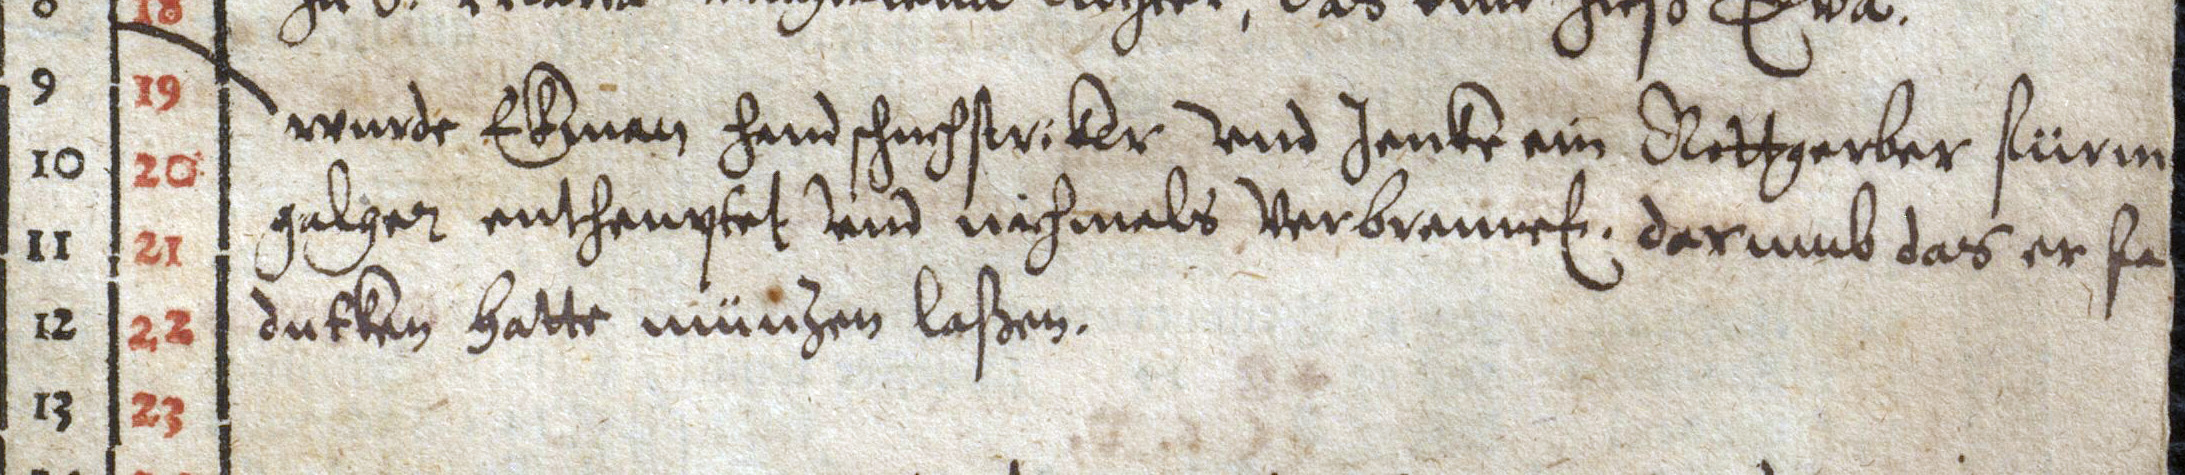 8 18 das eine hieß Eva.
9 19
wurde Ekman handschuchstriker und Janke ein Rottgerber fürm
10 20
galgen entheuptet und nachmals verbrennet. darumb das er fa
11 21
12 22 dukken hatte müntzen laßen.
13 23